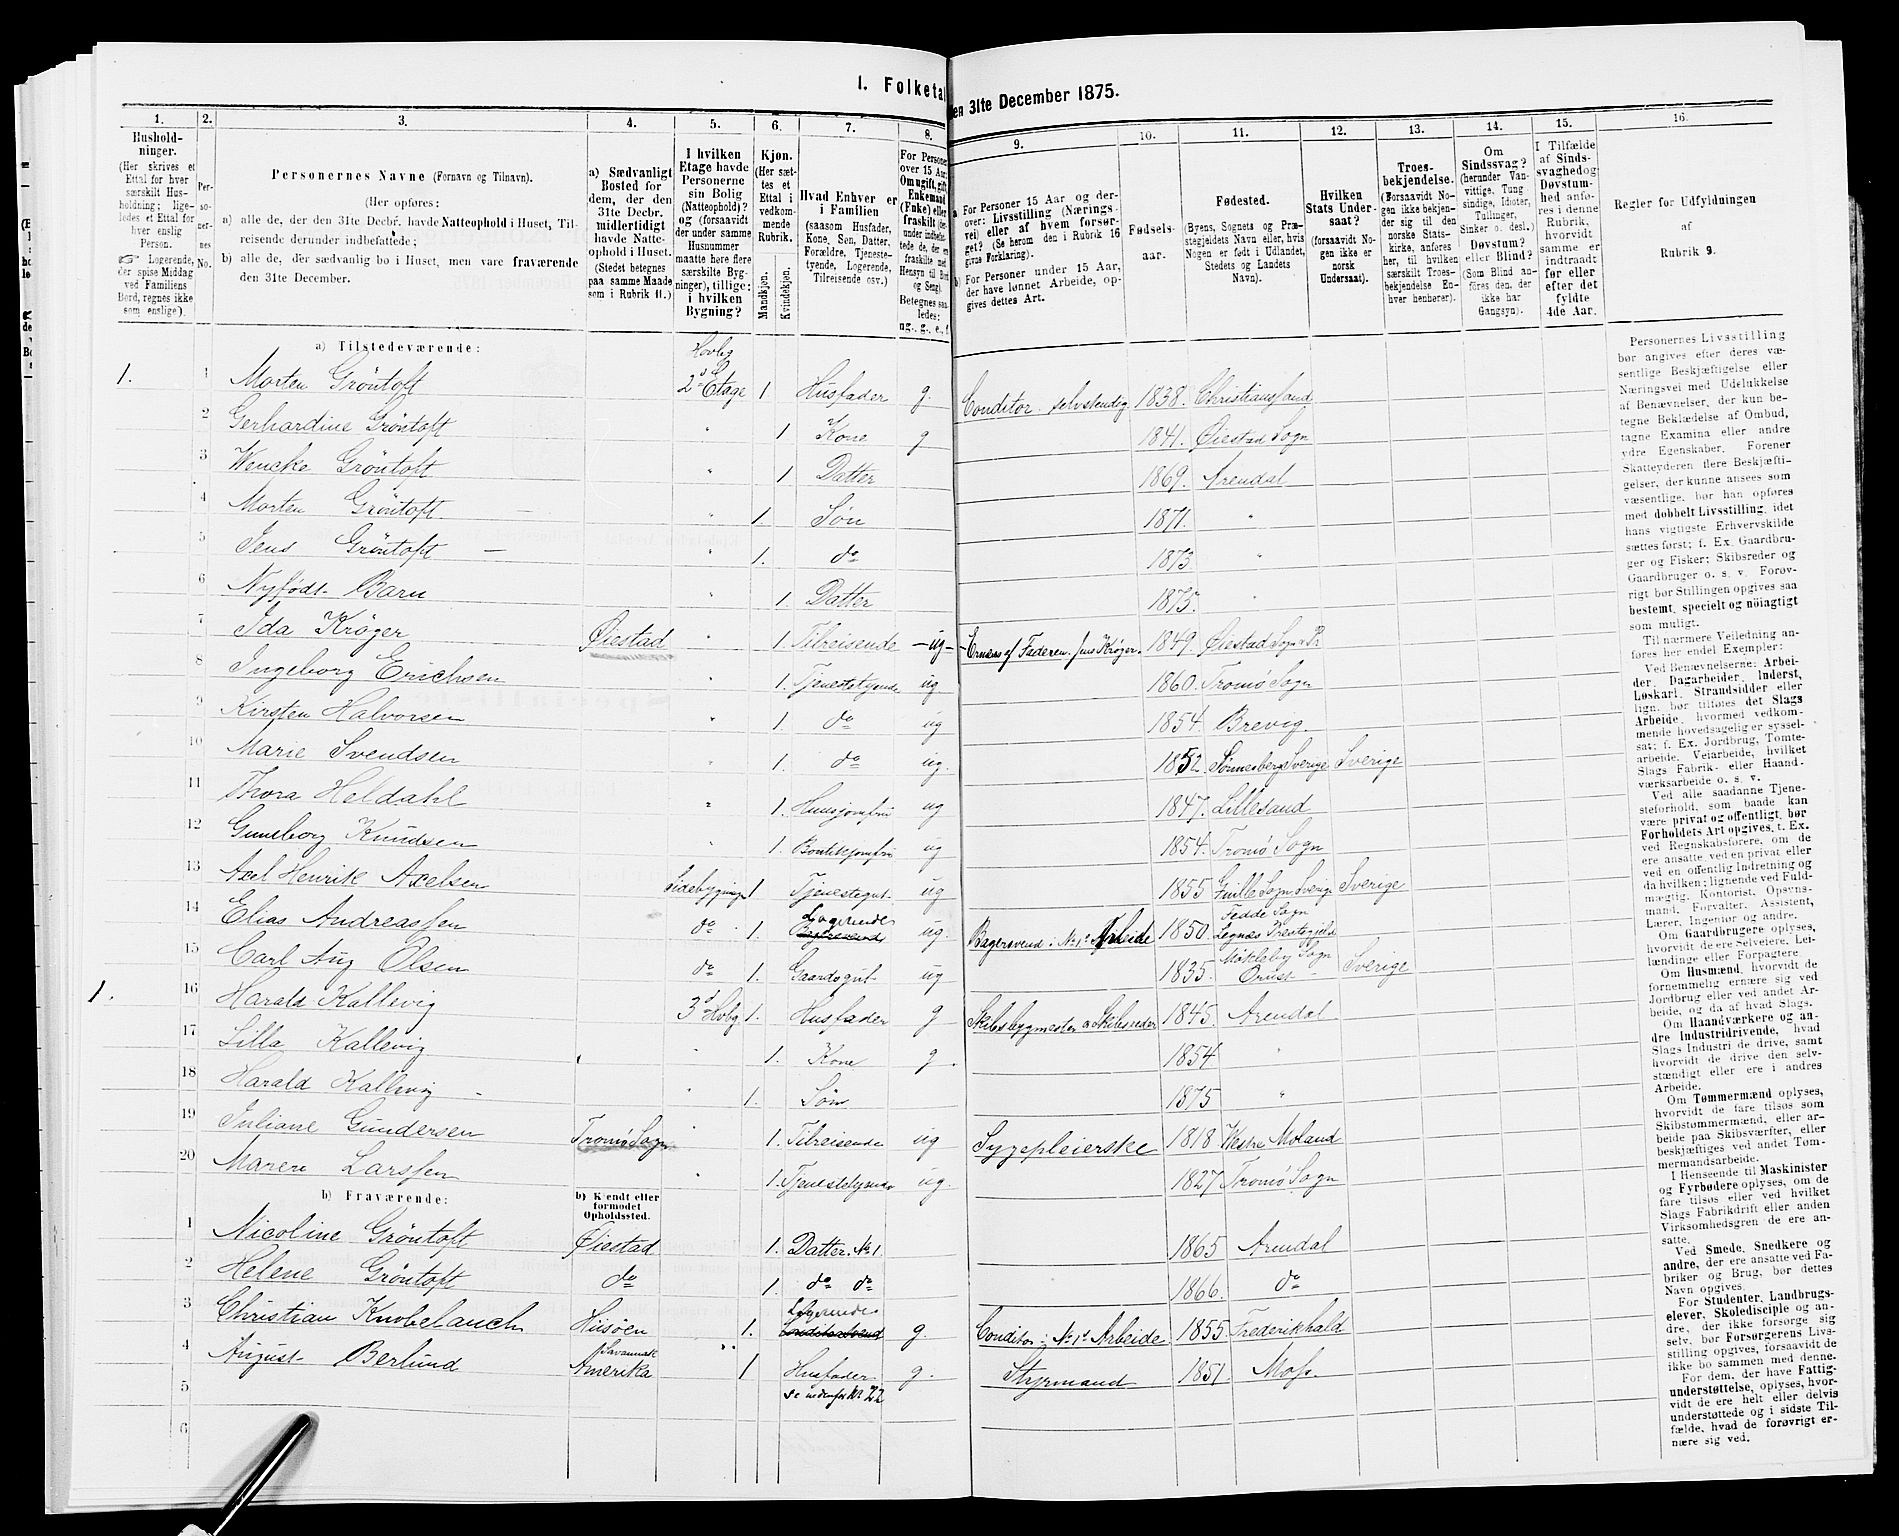 1. Folketal den 31te December 1875.
1. 2. 3. 4. 5. 6. 7. 8. 9. 10. 11. 12. 13. 14. 15. 16.
Hushold-
ninger.
(Her skrives et
Ettal for hver
særskilt Hus-
holdning; lige-
ledes et Ettal for
hver enslig
Person.
Logerende,
der spise Middag
ved Familiens
Bord, regnes ikke
som enslige).
Per-
so-
ner-
nes
No.
Personernes Navne (Fornavn og Tilnavn).
(Her opføres:
a) alle de, der den 31te Decbr. havde Natteophold i Huset, Til-
reisende derunder indbefattede;
b) alle de, der sædvanlig bo i Huset, men vare fraværende
den 31te December.
a) Sædvanligt
Bosted for
dem, der den
31te Decbr.
midlertidigt
havde Natte-
ophold i Huset.
(Stedet betegnes
paa samme Maade
som i Rubrik 11.)
I hvilken
Etage havde
Personerne
sin Bolig
(Natteophold)?
og (forsaavidt
der under samme
Husnummer
maatte høre flere
særskilte Byg-
ninger), tillige:
i hvilken
Bygning?
Kjøn.
(Her sæt-
tes et
Ettal i
vedkom-
mende
Rubrik.
Mandkjøn.
Kvindekjøn.
Hvad Enhver er
i Familien
(saasom Husfader,
Kone, Søn, Datter,
Forældre, Tjeneste-
tyende, Logerende,
Tilreisende osv.)
For Personer
over 15 Aar:
Om ugift, gift,
Enkemand
(Enke) eller
fraskilt
Betegnes saa-
ledes:
ug., g., e., f.
a For Personer 15 Aar og der-
over: Livsstilling (Nærings-
vei) eller af hvem forsør-
get? (Se herom den i Rubrik 16
givne Forklaring).
b) For Personer under 15 Aar,
der have lønnet Arbeide, op-
gives dettes Art.
Fødsels-
aar.
Fødested.
(Byens, Sognets og Præ-
stegjeldets Navn eller, hvis
Nogen er født i Udlandet,
Stedets og Landets
Navn).
Hvilken
Stats Under-
saat?
(forsaavidt No-
gen ikke er
norsk
Undersaat).
Troes-
bekjendelse.
(Forsaavidt No-
gen ikke bekjen-
der sig til den
norske Stats-
kirke, anføres
her, til hvilken
særskilt Troes-
bekjendelse En-
hver henhører).
Om
Sindssvag?
(herunder Van-
vittige, Tung-
sindige, Idioter,
Tullinger,
Sinker o. desl.)
Døvstum?
eller Blind?
(Som Blind an-
føres den, der
ikke har
Gangsyn).
I Tilfælde
af Sinds-
svaghed og
Døvstum-
hed anfø-
res i denne
Rubrik,
hvorvidt
samme er
indtraadt
før eller
efter det
fyldte
4de Aar.
Regler for Udfyldningen
af
Rubrik 9.
a) Tilstedeværende:
1. 1 Morten Gröntoft Hovbg 2den Etage 1 Husfader g. Conditor selvstendig 1838. Christianssand
2 Gerhardine Gröntoft " 1 Kone g 1841. Øiestad Sogn
3 Wencke Gröntoft " 1 Datter 1869. Arendal
4 Morten Gröntoft " 1. Søn 1871. "
5 Jens Gröntoft " 1. do 1873 "
6 Nyfødt Barn " 1. Datter 1875. "
7 Ida Kröger Øiestad " 1 Tilreisende ug Ernæres af Faderen Jens Kröger 1849. Øiestad Sogn & Pr
8 Ingeborg Erichsen " 1. Tjenestetyende ug. 1860. Tromø Sogn
9 Kirsten Halvorsen " 1. do ug 1854. Brevig.
10 Marie Svendsen " 1. do ug. 1852. Sønnesberg Sverige Sverige
11 Thora Heldahl " 1. Huusjomfru ug 1847. Lillesand
12 Guneborg Knudsen " 1. Boutikjomfru ug 1854. Tromø Sogn
13 Axel Henrik Axelsen Sidebygning 1 Tjenestegut ug 1855 Guille Sogn Sverige Sverige
14 Elias Andreassen do 1. Logerende ug. Bagersvend i No 1s Arbeide 1850. Fedde Sogn
15 Carl Aug Olsen do 1. Gaardsgut ug 1835. Orust Sverige
1. 16 Harald Kallevig 3d Hvbg 1. Husfader g Skibsbygmester & Skibsreder 1845. Arendal
17 Lilla Kallevig " 1. Kone g. 1854 "
18 Harald Kallevig " 1. Søn 1875 "
19 Juliane Gundersen Tromø Sogn " 1. Tilreisende ug Sygepleierske 1818 Westre Moland
20 Maren Larssen " 1. Tjenestetyende ug. 1827 Tromø Sogn
b) Fraværende:
b) Kjendt eller
formodet
Opholdssted.
1 Nicoline Gröntoft Øiestad 1. Datter. No 1. 1865 Arendal
2 Helene Gröntoft do 1. do do 1866. do
3 Christian Knobelauch Hisøen 1. Logerende g. Conditor i No 1s Arbeide 1855. Frederikhald
4 August Berlund Savannah Amerika 1 Husfader g. Styrmand 1851 Moss.
5 se indenfor No 22
6
Personernes Livsstilling
bør angives efter deres væ-
sentlige Beskjæftigelse eller
Næringsvei med Udelukkelse
af Benævnelser, der kun be-
tegne Beklædelse af Ombud,
tagne Examina eller andre
ydre Egenskaber. Forener
Skatteyderen flere Beskjæfti-
gelser, der kunne ansees som
væsentlige, bør han opføres
med dobbelt Livsstilling, idet
hans vigtigste Erhvervskilde
sættes først; f. Ex. Gaardbru-
ger og Fisker; Skibsreder og
Gaardbruger o. s. v. Forøv-
rigt bør Stillingen opgives saa
bestemt, specielt og nöiagtigt
som muligt.
Til nærmere Veiledning an-
føres her endel Exempler:
Ved Benævnelserne: Arbei-
der, Dagarbeider, Inderst,
Løskarl, Strandsidder eller
lign. bør tilføies det Slags
Arbeide, hvormed vedkom-
mende hovedsagelig er syssel-
sat; f. Ex. Jordbrug, Tomte-
arbeide, Veiarbeide, hvilket
Slags Fabrik- eller Haand-
værksarbeide o. s. v.
Ved alle saadanne Tjene-
steforhold, som baade kan
være privat og offentligt, bør
Forholdets Art opgives, t. Ex.
ved Regnskabsførere, om de
ere ansatte ved en privat eller
ved en offentlig Indretning og
da hvilken; lignende ved Fuld-
mægtig, Kontorist, Opsyns-
mand, Forvalter, Assistent,
Lærer, Ingeniør og andre.
Om Gaardbrugere oplyses,
hvorvidt de ere Selveiere, Lei-
lændinge eller Forpagtere.
Om Husmænd, hvorvidt de
fornemmelig ernære sig ved
Jordbrug eller ved andet Ar-
beide, og da af hvad Slags.
Om Haandværkere og an-
dre Industridrivende, hvad
Slags Industri de drive, samt
hvorvidt de drive den selv-
stændigt eller ere i andres
Arbeide.
Om Tømmermænd oplyses,
hvorvidt de fare tilsøs som
Skibstømmermænd, eller ar-
beide paa Skibsværfter, eller
beskjæftiges ved andet Tøm-
mermandsarbeide.
I Henseende til Maskinister
og Fyrbødere oplyses, om de
fare tilsøs eller ved hvilket
Slags Fabrikdrift eller anden
Virksomhedsgren de ere an-
satte.
Ved Smede, Snedkere og
andre, der ere ansatte ved Fa-
briker og Brug, bør dettes
Navn opgives.
For Studenter, Landbrugs-
elever, Skoledisciple og an-
dre, der ikke forsørge sig
selv, bør Forsørgerens Livs-
stilling opgives, forsaavidt de
ikke bo sammen med denne.
For dem, der have Fattig-
understøttelse, oplyses, hvor-
vidt de ere helt eller delvis
understøttede og i sidste Til-
fælde, hvad de forøvrigt er-
nære sig ved.